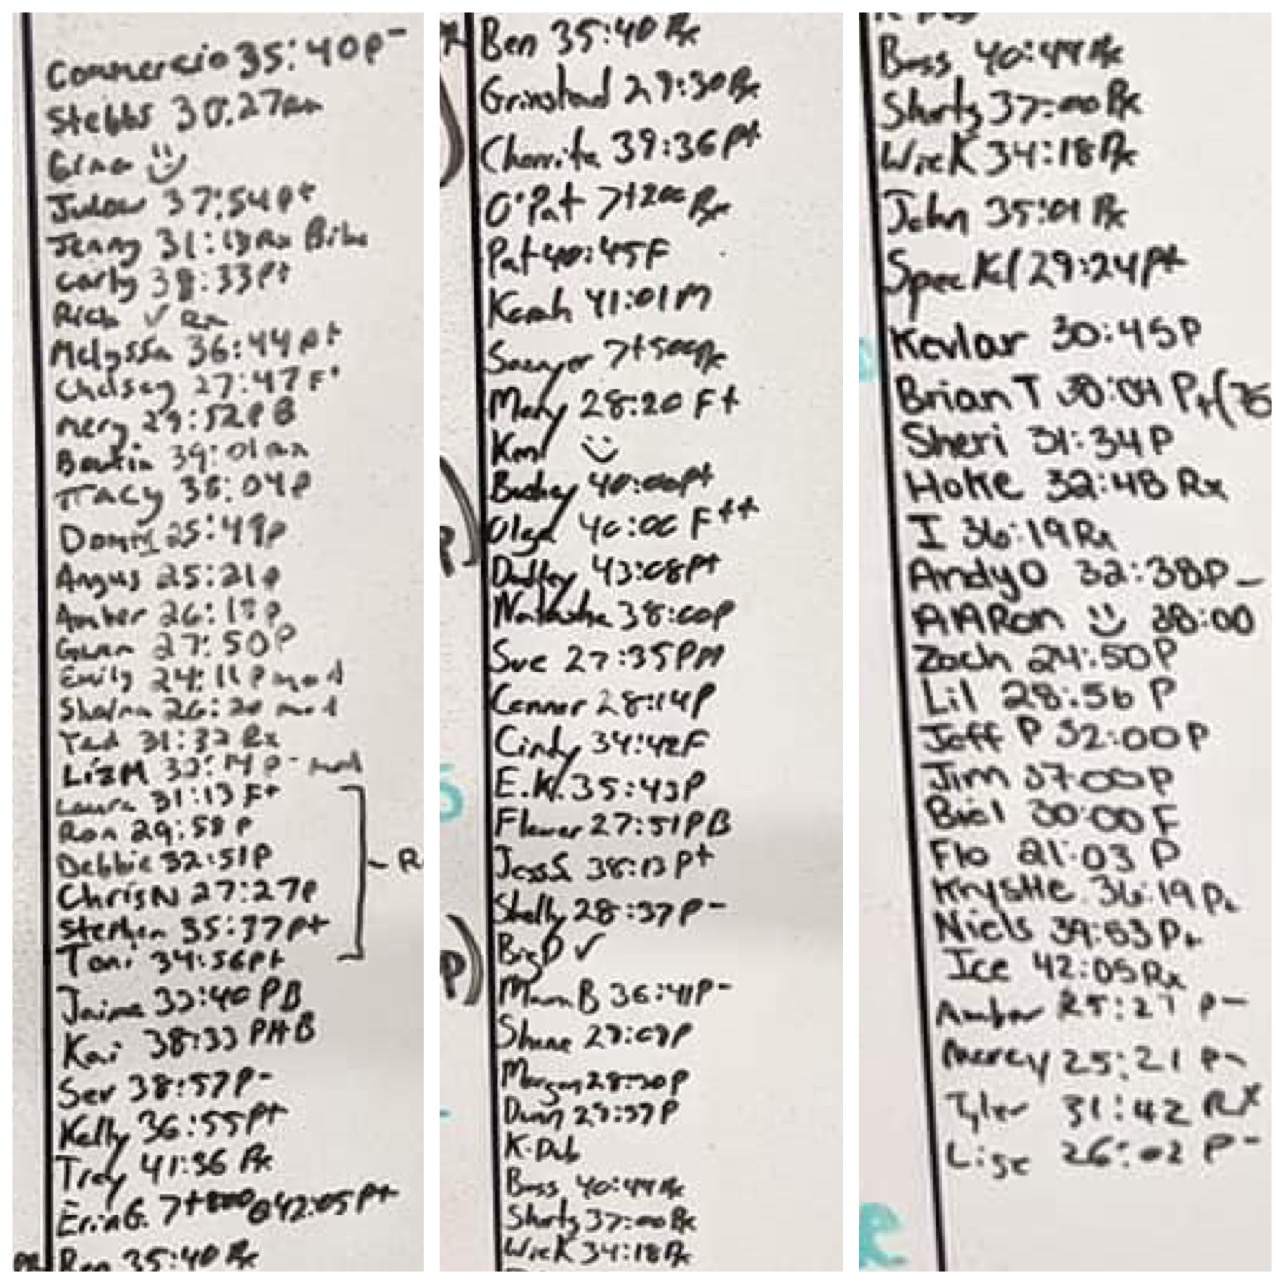 Commercio 35:40P-
Stebbs 30:27
Gina
37:54P+
Jenny 31:18Rx Bike
Carly 38:33P+
Rich ✓ Rx
Melyssa 36:44P+
Chelsey 27:47F+
Mery 29:52PB
39:01
TRACY 38:04P
25:49P
Angus 25:21P
Amber 26:18P
Gwen 27:50P
Emily 24:11P mod
26:20 mod
Ted 31:32 Rx
LizM P- mod
Laura 31:13 F+
Ron 29:58 P
Debbie 32:51P
- R
ChrisN 27:27P
Stephen 35:37P+
Toni 34:56P+
Jaime 33:40 PB
Kai 38:33 P+B
Sev 38:57P-
Kelly 36:55P+
Troy 41:36 Rx
ErinG. @42:05P+
Ben 35:40 Rx
Ben 35:40 Rx
29:30Rx
39:36P+
O'Pat 7+200 Rx
Pat 40:45F
41:01M
Sawyer 7+500Rx
Mary 28:20 F+
40:00P+
Olga 40:00 F++
43:08P+
Natasha 38:00P
Sue 27:35PM
Connor 28:14P
Cindy 34:42F
E.K. 35:43P
Flower 27:51PB
JessS 38:13P+
Shelly 28:37P-
BigD ✓
MamaB 36:41P-
Shane 29:09P
Morgan 28:30P
Dunn 29:37P
K-Dub
Boss 40:49Rx
Shorty 37:00Rx
Wick 34:18Rx
Boss 40:49Rx
Shorty 37:00Rx
Wick 34:18Rx
John 35:01 Rx
Speckl 29:24P+
Kevlar 30:45P
Brian T 30:04 P+(75
Sheri 31:34P
Hoke 32:48 Rx
I 36:19Rx
AndyO 32:38P-
AARon 38:00
Zach 24:50P
Lil 28:56 P
Jeff P 32:00P
Jim 37:00P
Biel 30:00F
Flo 21:03 P
Krystle 36:19P+
Niels 39:53P+
Ice 42:05Rx
Amber 25:27 P-
Mercy 25:21 P-
Tyler 31:42 RX
Lise 26:02 P-